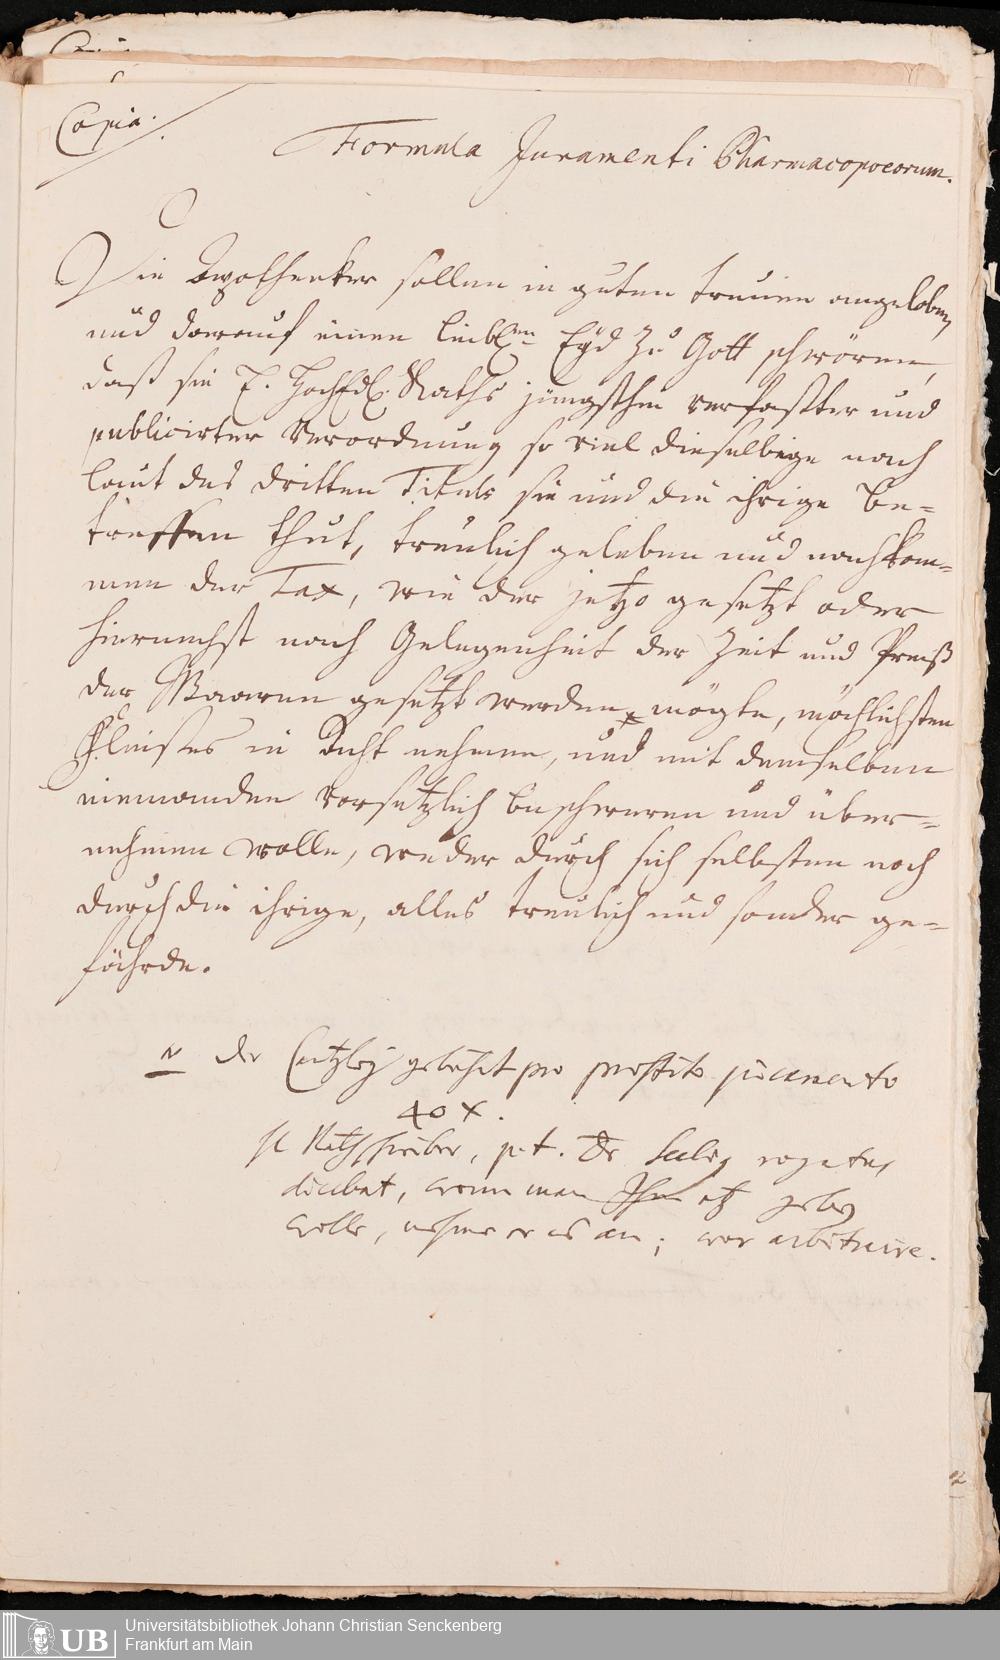 Copia.
Formula Juramenti Pharmacopoeorum.
Die Apotheeker sollen in guten treuen angeloben,
und darauf einen leibl.en Eyd zu Gott schwören,
daß sie E. HochEdl. Raths jüngsthin verfaßter und
publicirter Verordnung so viel dieselbige nach
laut des dritten Tituls sie und die ihrige be-
treffen thut, treulich geleben und nachkom-
men der Tax, wie der jetzo gesetzt oder
hiernechst nach Gelegenheit der Zeit und Preiß
der Waaren gesetzt werden mögte, möglichsten
Fleißes in Acht nehmen, und mit demselben
niemanden vorsetzlich beschweren und über-
nehmen wolle, weder durch sich selbsten noch
durch die ihrige, alles treulich und sonder ge-
fährde.
der Cantzley gebührt pro praestito juramento
40 x.
Rathschreiber, p. t. Dr rogatus
dicebat, wenn man Ihm etz geben
wolle, nehme er es an; war arbitraire.
2
UB
Universitätsbibliothek Johann Christian Senckenberg
Frankfurt am Main